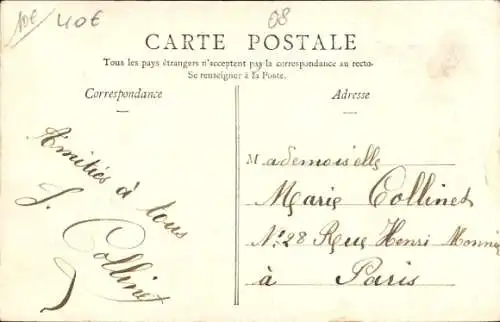 10€ 40€ 08
CARTE POSTALE
Tous les pays étrangers n'acceptent pas la correspondance au recto-
Se renseigner à la Poste.
Correspondance
Adresse
Amitiés à tous
S. Collinet
Mademoiselle
Marie Collinet
N.° 28 Rue Henri Monnier
à Paris